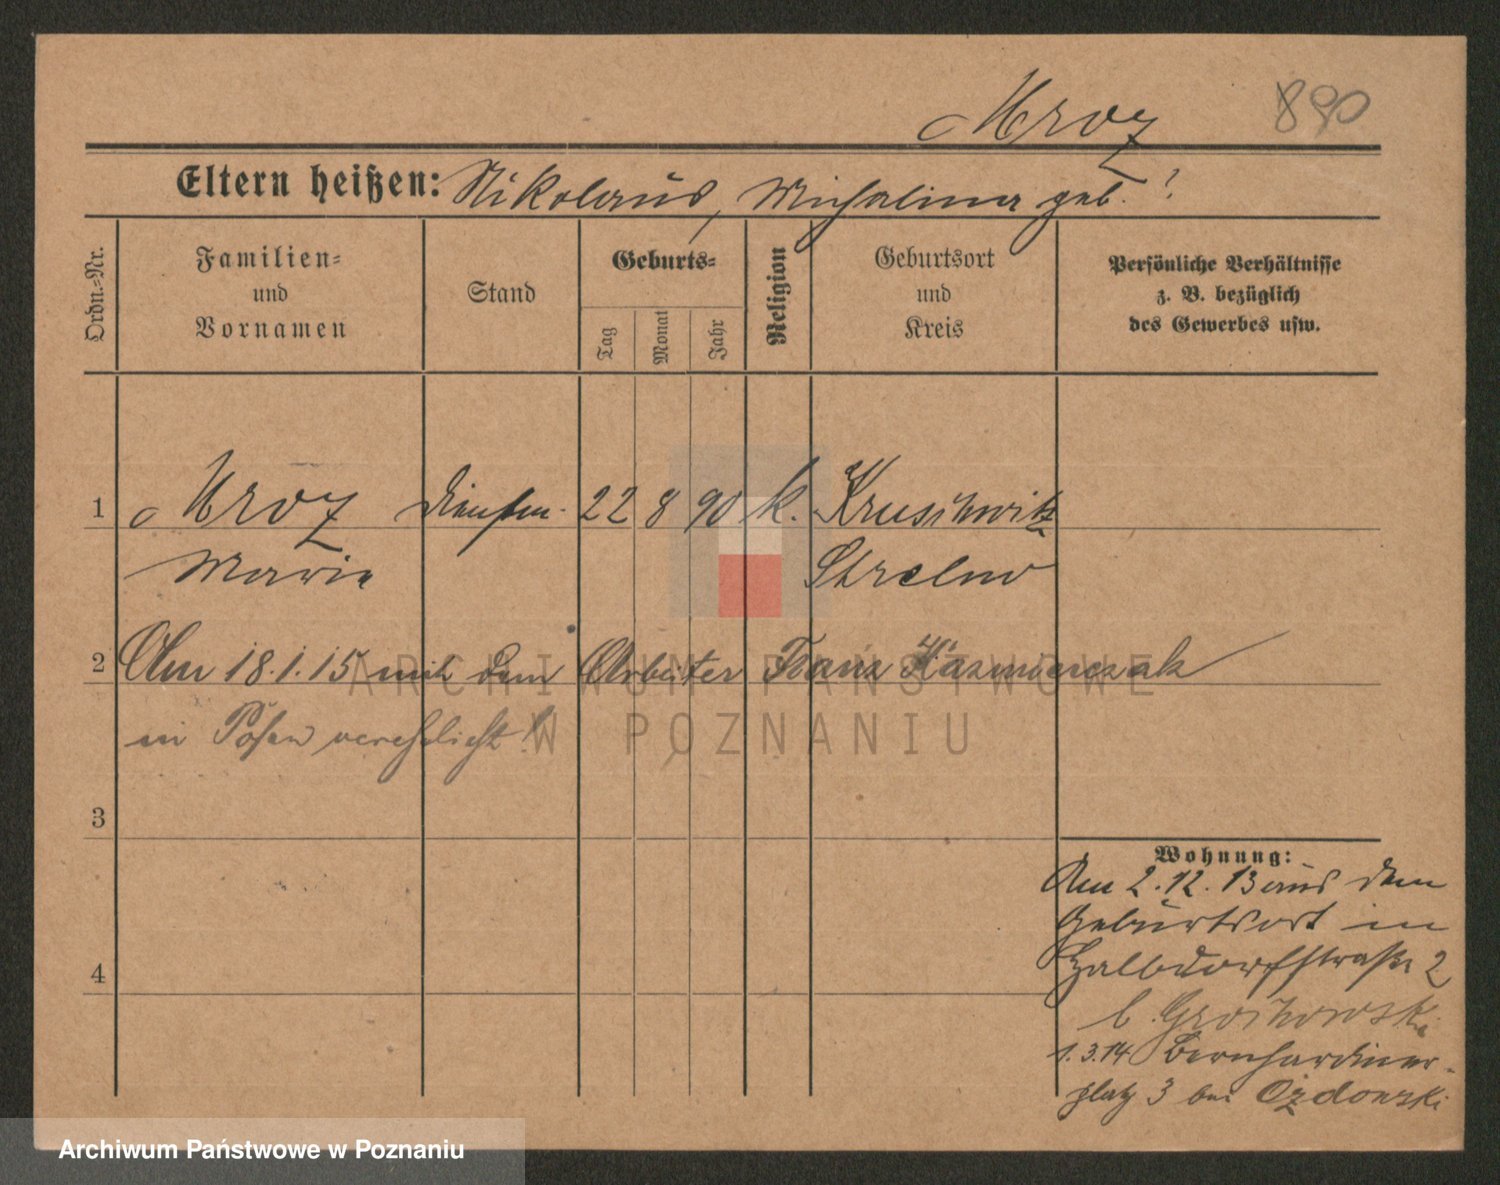 Mroz 890
Eltern heißen: Nikolaus, Michalina geb. ?
Ordn.-Nr.
Familien-
und
Vornamen
Stand
Geburts-
Tag
Monat
Jahr
Religion
Geburtsort
und
Kreis
Persönliche Verhältnisse
z. B. bezüglich
des Gewerbes usw.
1 Mroz 22 8 90 k. Kruschwitz
Marie Strelno
2 Am 18.1.15 mit dem Arbeiter Franz Kazmierczak
in Posen verehelicht!
3
4
Wohnung:
Am 2.12.13 aus dem
Geburtsort in
Halbdorfstraße 2
b. Grochowski
1.3.14 Bernhardiner-
platz 3 bei Ozdowski
ARCHIWUM PAŃSTWOWE
W POZNANIU
Archiwum Państwowe w Poznaniu